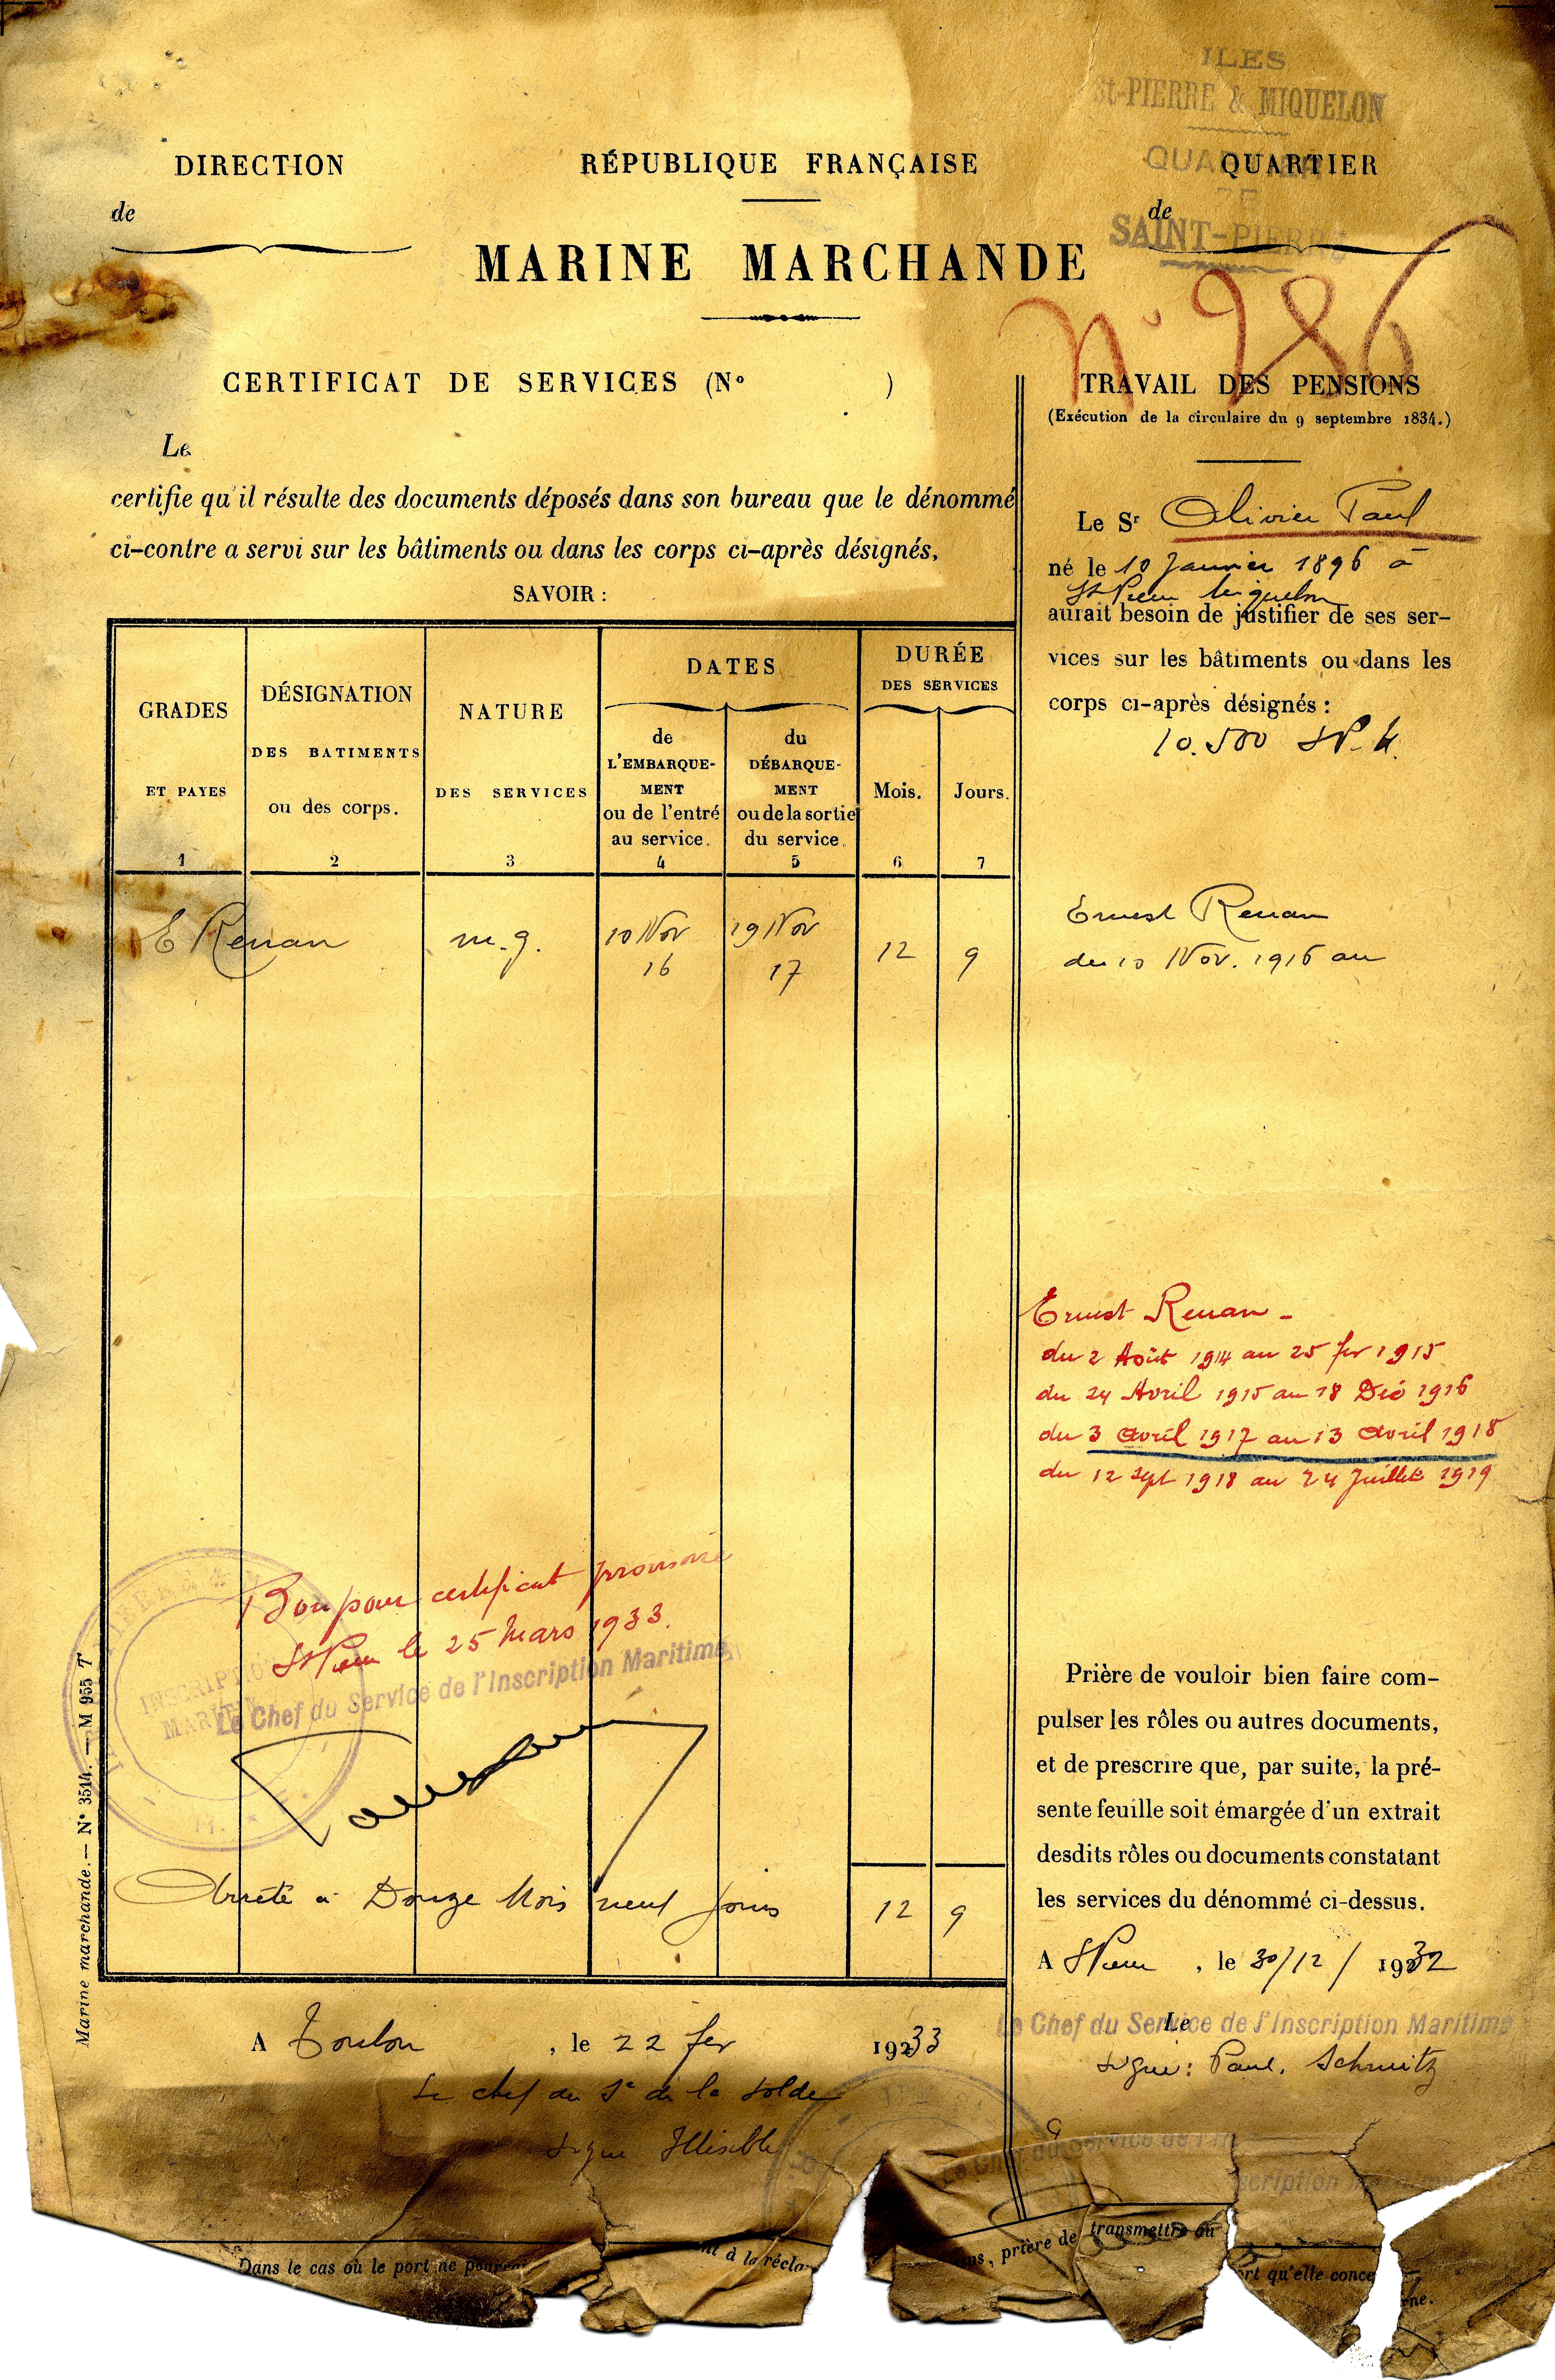 ILES
St-PIERRE & MIQUELON
QUARTIER
DE
SAINT-PIERRE
DIRECTION
de
RÉPUBLIQUE FRANÇAISE
QUARTIER
de
MARINE MARCHANDE
N° 986
CERTIFICAT DE SERVICES (N° )
Le
certifie qu'il résulte des documents déposés dans son bureau que le dénommé
ci-contre a servi sur les bâtiments ou dans les corps ci-après désignés,
SAVOIR :
GRADES
ET PAYES
1
DÉSIGNATION
DES BATIMENTS
ou des corps.
2
NATURE
DES SERVICES
3
DATES
de
L'EMBARQUE-
MENT
ou de l'entré
au service.
4
du
DÉBARQUE-
MENT
ou de la sortie
du service.
5
DURÉE
DES SERVICES
Mois.
6
Jours.
7
E Renan m.g. 10 Nov 19 Nov 12 9
16 17
Bon pour certificat provisoire
St Pierre le 25 Mars 1933.
Le Chef du Service de l'Inscription Maritime,
INSCRIPTION
MARITIME
Arrêté à Douze Mois neuf jours 12 9
A Toulon , le 22 fev 19233
Le chef du Se de la Solde
Signé Illisible
Marine marchande. — N° 3514. — M 955 T
TRAVAIL DES PENSIONS
(Exécution de la circulaire du 9 septembre 1834.)
Le Sr Olivier Paul
né le 10 Janvier 1896 à
St Pierre Miquelon
aurait besoin de justifier de ses ser-
vices sur les bâtiments ou dans les
corps ci-après désignés :
10.500 SP. M.
Ernest Renan
du 10 Nov. 1916 au
Ernest Renan -
du 2 Août 1914 au 25 fev 1915
du 24 Avril 1915 au 18 Déc 1916
du 3 avril 1917 au 13 avril 1918
du 12 Sept 1918 au 24 Juillet 1919
Prière de vouloir bien faire com-
pulser les rôles ou autres documents,
et de prescrire que, par suite, la pré-
sente feuille soit émargée d'un extrait
desdits rôles ou documents constatant
les services du dénommé ci-dessus.
A St Pierre , le 30/12/ 19232
Le
Le Chef du Service de l'Inscription Maritime
Signé: Paul. Schmitz
Le Chef du Service de l'In
scription Maritime
Dans le cas où le port ne pourr
nt à la récla
ns, prière de transmettre au
ort qu'elle conce
ne.